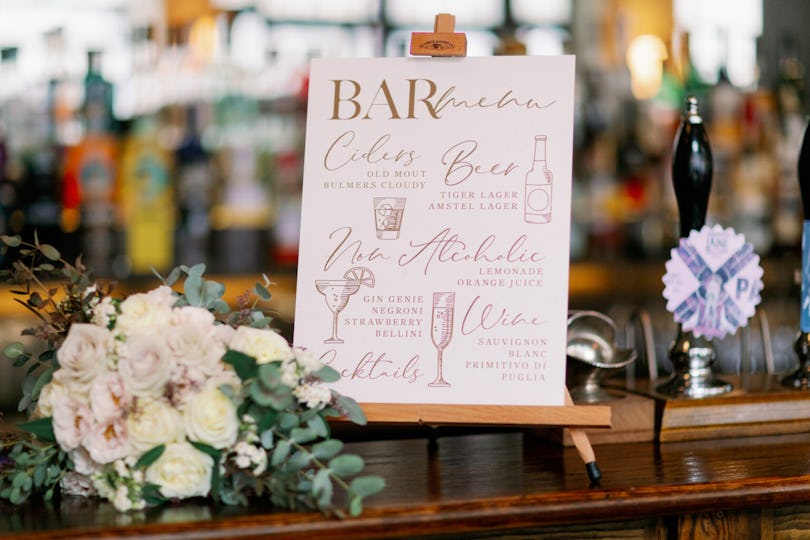 BAR menu
Ciders
OLD MOUT
BULMERS CLOUDY
Beer
TIGER LAGER
AMSTEL LAGER
Non Alcoholic
LEMONADE
ORANGE JUICE
GIN GENIE
NEGRONI
STRAWBERRY
BELLINI
Cocktails
Wine
SAUVIGNON
BLANC
PRIMITIVO DI
PUGLIA